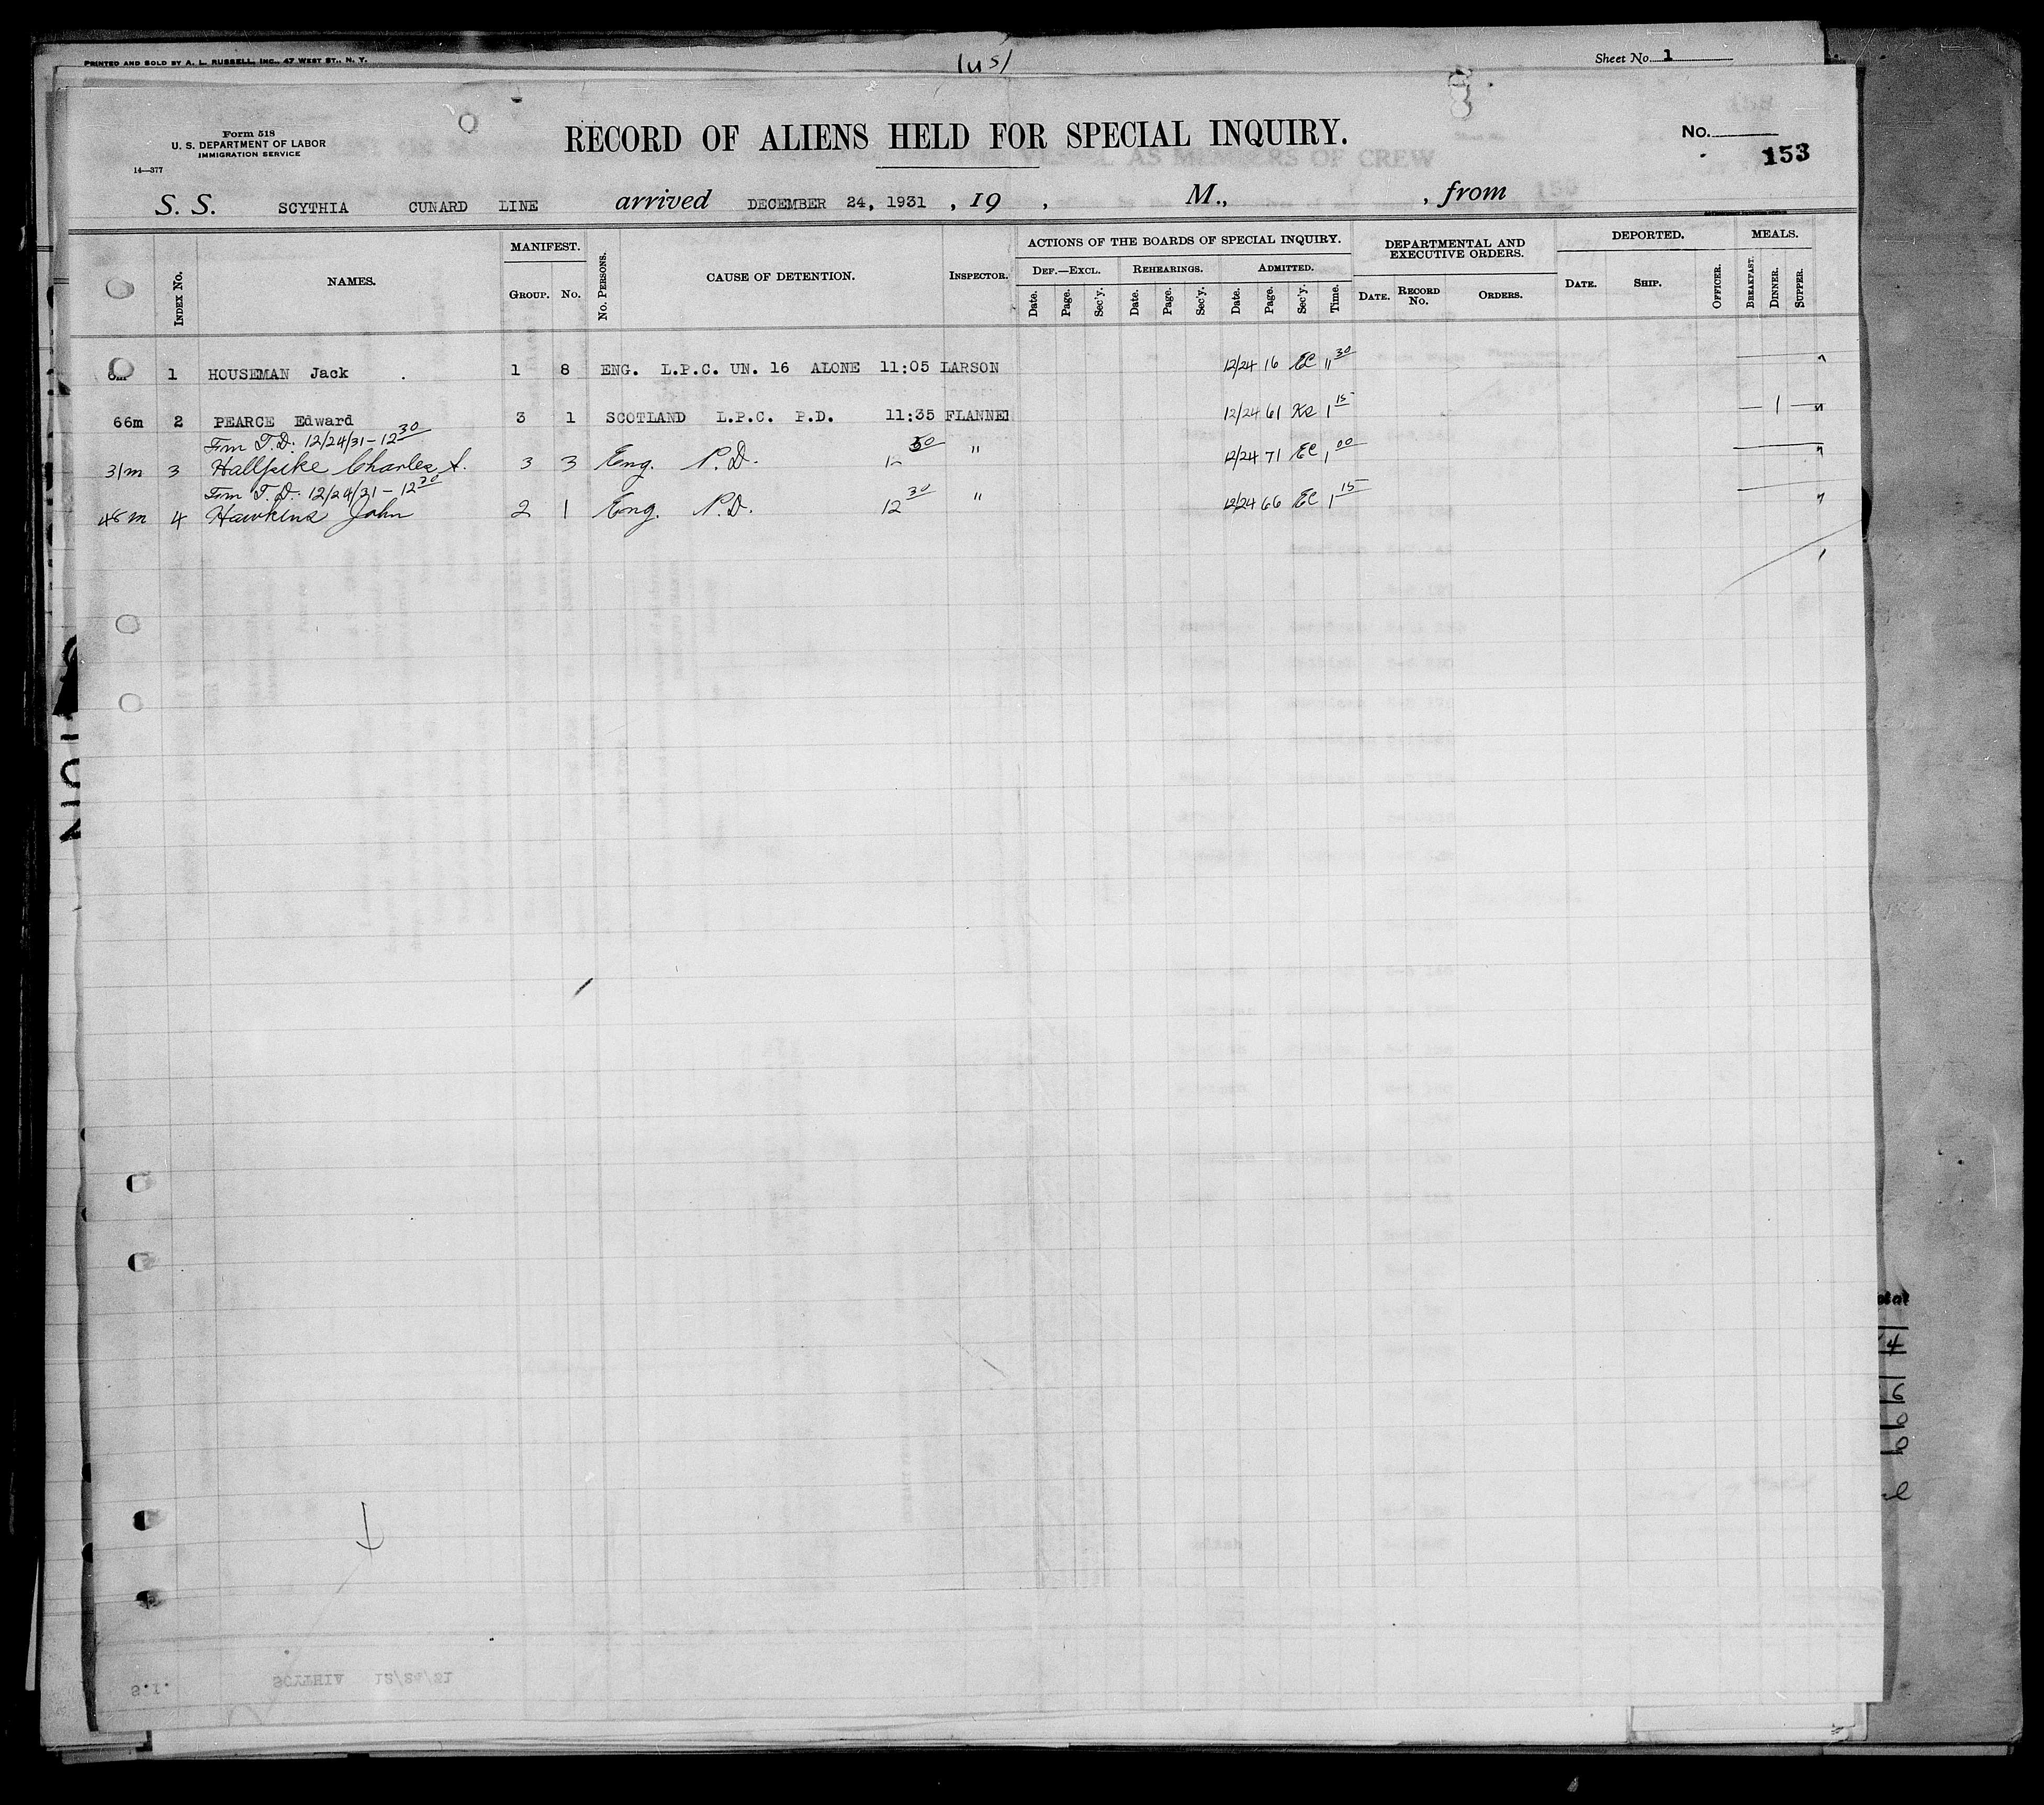 PRINTED AND SOLD BY A. L. RUSSELL, INC., 47 WEST ST., N. Y.
Sheet No. 1
Form 518
U. S. DEPARTMENT OF LABOR
IMMIGRATION SERVICE
14—377
RECORD OF ALIENS HELD FOR SPECIAL INQUIRY.
No.
153
S. S. SCYTHIA CUNARD LINE arrived DECEMBER 24, 1931 , 19 , M., , from
INDEX No. NAMES. MANIFEST. GROUP. No. No. PERSONS. CAUSE OF DETENTION. INSPECTOR. ACTIONS OF THE BOARDS OF SPECIAL INQUIRY. DEF.—EXCL. Date. Page. Sec'y. REHEARINGS. Date. Page. Sec'y. ADMITTED. Date. Page. Sec'y. Time. DEPARTMENTAL AND EXECUTIVE ORDERS. DATE. RECORD No. ORDERS. DEPORTED. DATE. SHIP. OFFICER. MEALS. BREAKFAST. DINNER. SUPPER.
1 HOUSEMAN Jack 1 8 ENG. L.P.C. UN. 16 ALONE 11:05 LARSON 12/24 16 EC 11 30
66m 2 PEARCE Edward 3 1 SCOTLAND L.P.C. P.D. 11:35 FLANNE 12/24 61 1 15 — 1 —
Frm T.D. 12/24/31 - 12 30
31m 3 Hallpike Charles A. 3 3 Eng. P.D. 12 30 " 12/24 71 EC 1 00
Frm T.D. 12/24/31 - 12 30
48m 4 Hawkins John 2 1 Eng. P.D. 12 30 " 12/24 66 EC 1 15
S.I. SCYTHIA 12/24/31